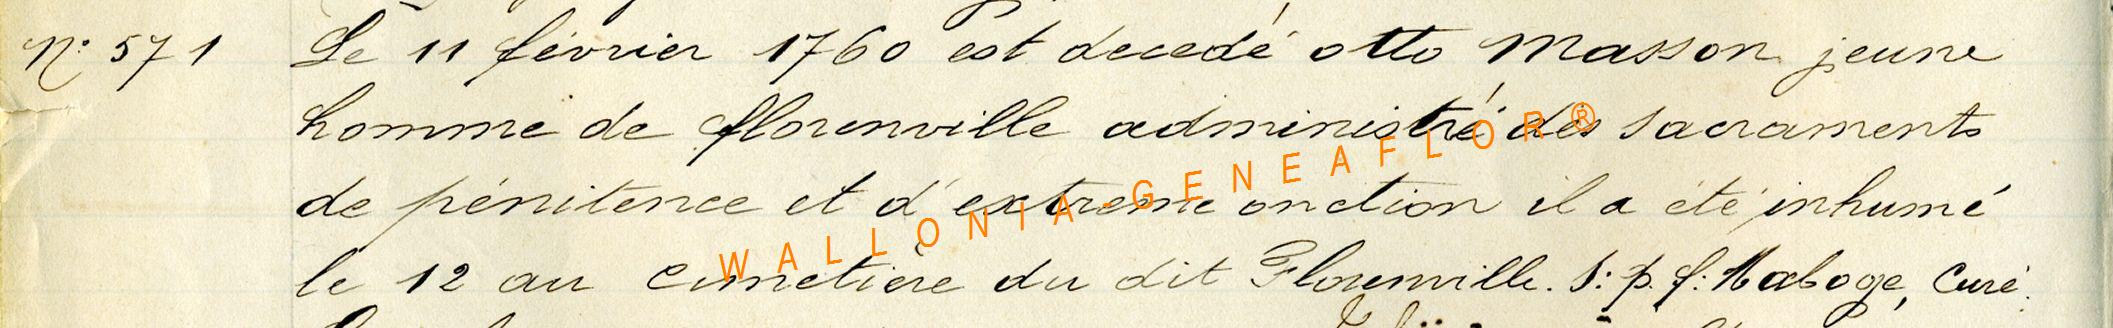 N° 571 Le 11 février 1760 est decedé otto Masson jeune
homme de florenville administré des sacraments
de pénitence et d'extreme onction il a été inhumé
le 12 au cimetière du dit Florenville. S: p. f: Maboge, Curé.
WALLONIA-GENEAFLOR®